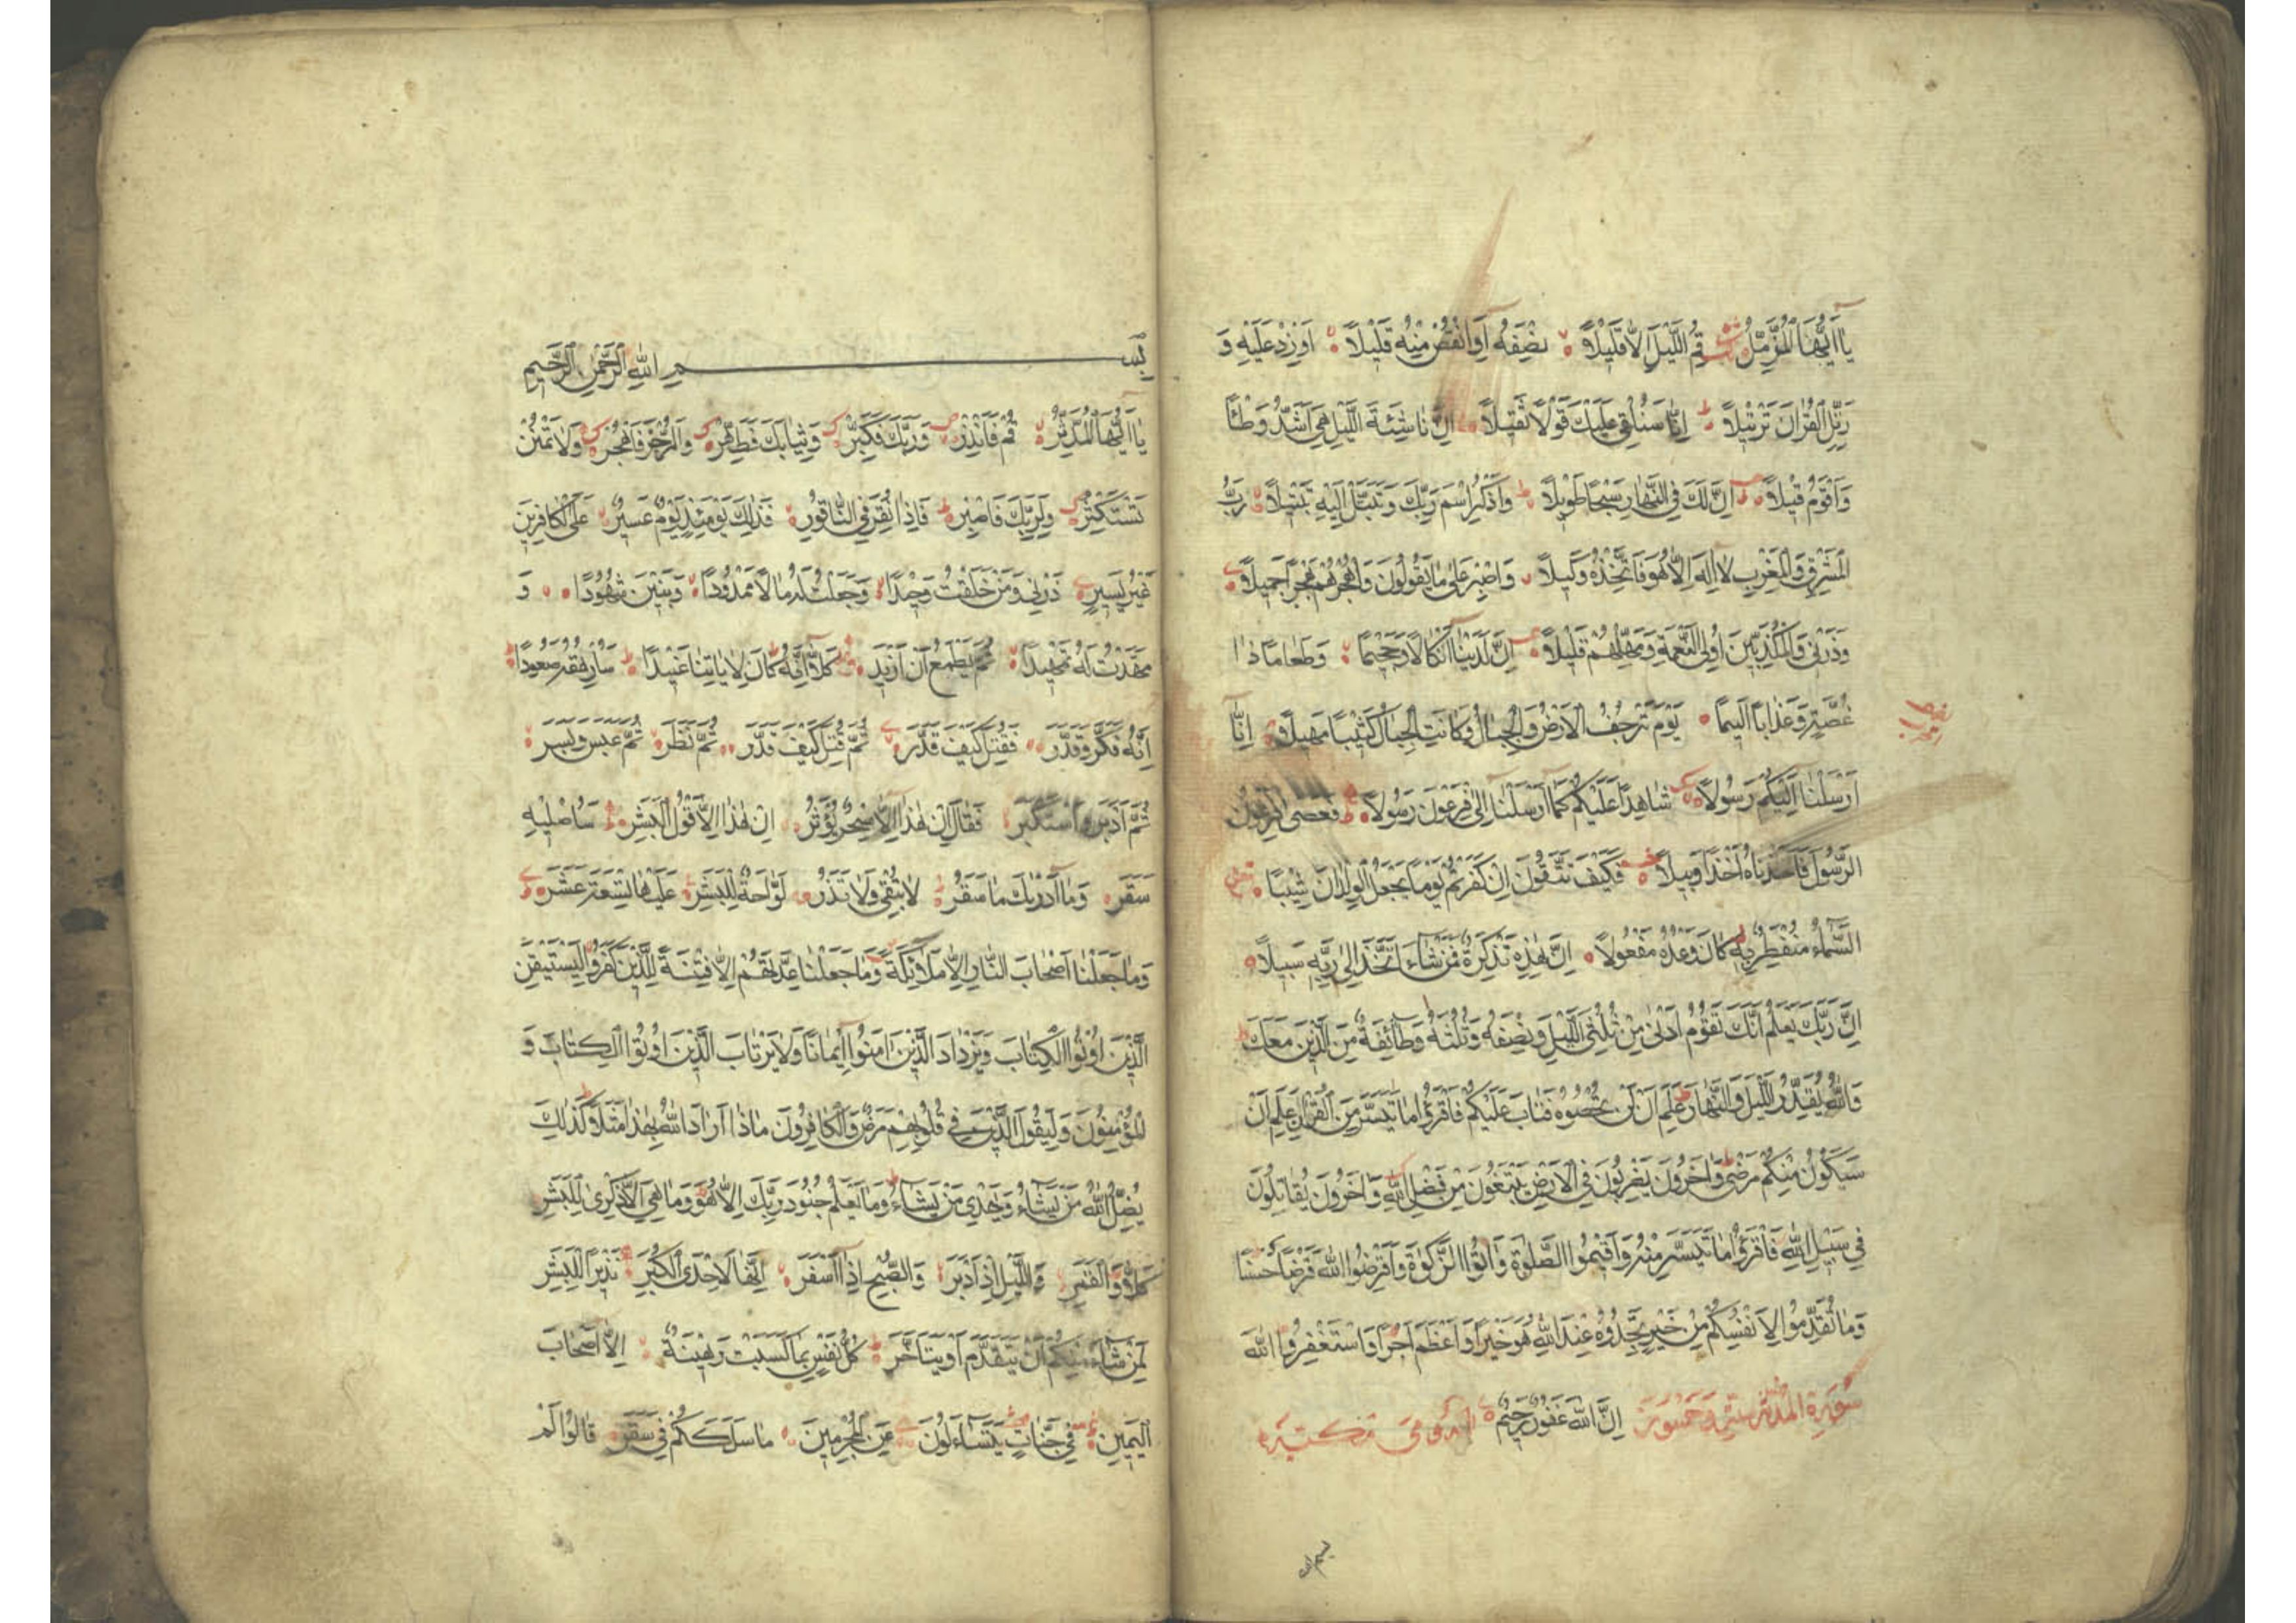 يَا أَيُّهَا الْمُزَّمِّلُ قُمِ اللَّيْلَ إِلَّا قَلِيلًا نِصْفَهُ أَوِ انْقُصْ مِنْهُ قَلِيلًا أَوْ زِدْ عَلَيْهِ وَ
رَتِّلِ الْقُرْآنَ تَرْتِيلًا إِنَّا سَنُلْقِي عَلَيْكَ قَوْلًا ثَقِيلًا إِنَّ نَاشِئَةَ اللَّيْلِ هِيَ أَشَدُّ وَطْئًا
وَأَقْوَمُ قِيلًا إِنَّ لَكَ فِي النَّهَارِ سَبْحًا طَوِيلًا وَاذْكُرِ اسْمَ رَبِّكَ وَتَبَتَّلْ إِلَيْهِ تَبْتِيلًا رَبُّ
الْمَشْرِقِ وَالْمَغْرِبِ لَا إِلَهَ إِلَّا هُوَ فَاتَّخِذْهُ وَكِيلًا وَاصْبِرْ عَلَى مَا يَقُولُونَ وَاهْجُرْهُمْ هَجْرًا جَمِيلًا
وَذَرْنِي وَالْمُكَذِّبِينَ أُولِي النَّعْمَةِ وَمَهِّلْهُمْ قَلِيلًا إِنَّ لَدَيْنَا أَنْكَالًا وَجَحِيمًا وَطَعَامًا ذَا
غُصَّةٍ وَعَذَابًا أَلِيمًا يَوْمَ تَرْجُفُ الْأَرْضُ وَالْجِبَالُ وَكَانَتِ الْجِبَالُ كَثِيبًا مَهِيلًا إِنَّا
أَرْسَلْنَا إِلَيْكُمْ رَسُولًا شَاهِدًا عَلَيْكُمْ كَمَا أَرْسَلْنَا إِلَى فِرْعَوْنَ رَسُولًا فَعَصَى فِرْعَوْنُ
الرَّسُولَ فَأَخَذْنَاهُ أَخْذًا وَبِيلًا فَكَيْفَ تَتَّقُونَ إِنْ كَفَرْتُمْ يَوْمًا يَجْعَلُ الْوِلْدَانَ شِيبًا
السَّمَاءُ مُنْفَطِرٌ بِهِ كَانَ وَعْدُهُ مَفْعُولًا إِنَّ هَذِهِ تَذْكِرَةٌ فَمَنْ شَاءَ اتَّخَذَ إِلَى رَبِّهِ سَبِيلًا
إِنَّ رَبَّكَ يَعْلَمُ أَنَّكَ تَقُومُ أَدْنَى مِنْ ثُلُثَيِ اللَّيْلِ وَنِصْفَهُ وَثُلُثَهُ وَطَائِفَةٌ مِنَ الَّذِينَ مَعَكَ
وَاللَّهُ يُقَدِّرُ اللَّيْلَ وَالنَّهَارَ عَلِمَ أَنْ لَنْ تُحْصُوهُ فَتَابَ عَلَيْكُمْ فَاقْرَءُوا مَا تَيَسَّرَ مِنَ الْقُرْآنِ عَلِمَ أَنْ
سَيَكُونُ مِنْكُمْ مَرْضَى وَآخَرُونَ يَضْرِبُونَ فِي الْأَرْضِ يَبْتَغُونَ مِنْ فَضْلِ اللَّهِ وَآخَرُونَ يُقَاتِلُونَ
فِي سَبِيلِ اللَّهِ فَاقْرَءُوا مَا تَيَسَّرَ مِنْهُ وَأَقِيمُوا الصَّلَوةَ وَآتُوا الزَّكَوةَ وَأَقْرِضُوا اللَّهَ قَرْضًا حَسَنًا
وَمَا تُقَدِّمُوا لِأَنْفُسِكُمْ مِنْ خَيْرٍ تَجِدُوهُ عِنْدَ اللَّهِ هُوَ خَيْرًا وَأَعْظَمَ أَجْرًا وَاسْتَغْفِرُوا اللَّهَ
سورة المدثر إِنَّ اللَّهَ غَفُورٌ رَحِيمٌ
بسم الله
بِسْمِ اللَّهِ الرَّحْمَنِ الرَّحِيمِ
يَا أَيُّهَا الْمُدَّثِّرُ قُمْ فَأَنْذِرْ وَرَبَّكَ فَكَبِّرْ وَثِيَابَكَ فَطَهِّرْ وَالرُّجْزَ فَاهْجُرْ وَلَا تَمْنُنْ
تَسْتَكْثِرُ وَلِرَبِّكَ فَاصْبِرْ فَإِذَا نُقِرَ فِي النَّاقُورِ فَذَلِكَ يَوْمَئِذٍ يَوْمٌ عَسِيرٌ عَلَى الْكَافِرِينَ
غَيْرُ يَسِيرٍ ذَرْنِي وَمَنْ خَلَقْتُ وَحِيدًا وَجَعَلْتُ لَهُ مَالًا مَمْدُودًا وَبَنِينَ شُهُودًا وَ
مَهَّدْتُ لَهُ تَمْهِيدًا ثُمَّ يَطْمَعُ أَنْ أَزِيدَ كَلَّا إِنَّهُ كَانَ لِآيَاتِنَا عَنِيدًا سَأُرْهِقُهُ صَعُودًا
إِنَّهُ فَكَّرَ وَقَدَّرَ فَقُتِلَ كَيْفَ قَدَّرَ ثُمَّ قُتِلَ كَيْفَ قَدَّرَ ثُمَّ نَظَرَ ثُمَّ عَبَسَ وَبَسَرَ
ثُمَّ أَدْبَرَ وَاسْتَكْبَرَ فَقَالَ إِنْ هَذَا إِلَّا سِحْرٌ يُؤْثَرُ إِنْ هَذَا إِلَّا قَوْلُ الْبَشَرِ سَأُصْلِيهِ
سَقَرَ وَمَا أَدْرَيكَ مَا سَقَرُ لَا تُبْقِي وَلَا تَذَرُ لَوَّاحَةٌ لِلْبَشَرِ عَلَيْهَا تِسْعَةَ عَشَرَ
وَمَا جَعَلْنَا أَصْحَابَ النَّارِ إِلَّا مَلَائِكَةً وَمَا جَعَلْنَا عِدَّتَهُمْ إِلَّا فِتْنَةً لِلَّذِينَ كَفَرُوا لِيَسْتَيْقِنَ
الَّذِينَ أُوتُوا الْكِتَابَ وَيَزْدَادَ الَّذِينَ آمَنُوا إِيمَانًا وَلَا يَرْتَابَ الَّذِينَ أُوتُوا الْكِتَابَ وَ
الْمُؤْمِنُونَ وَلِيَقُولَ الَّذِينَ فِي قُلُوبِهِمْ مَرَضٌ وَالْكَافِرُونَ مَاذَا أَرَادَ اللَّهُ بِهَذَا مَثَلًا كَذَلِكَ
يُضِلُّ اللَّهُ مَنْ يَشَاءُ وَيَهْدِي مَنْ يَشَاءُ وَمَا يَعْلَمُ جُنُودَ رَبِّكَ إِلَّا هُوَ وَمَا هِيَ إِلَّا ذِكْرَى لِلْبَشَرِ
كَلَّا وَالْقَمَرِ وَاللَّيْلِ إِذْ أَدْبَرَ وَالصُّبْحِ إِذَا أَسْفَرَ إِنَّهَا لَإِحْدَى الْكُبَرِ نَذِيرًا لِلْبَشَرِ
لِمَنْ شَاءَ مِنْكُمْ أَنْ يَتَقَدَّمَ أَوْ يَتَأَخَّرَ كُلُّ نَفْسٍ بِمَا كَسَبَتْ رَهِينَةٌ إِلَّا أَصْحَابَ
الْيَمِينِ فِي جَنَّاتٍ يَتَسَاءَلُونَ عَنِ الْمُجْرِمِينَ مَا سَلَكَكُمْ فِي سَقَرَ قَالُوا لَمْ